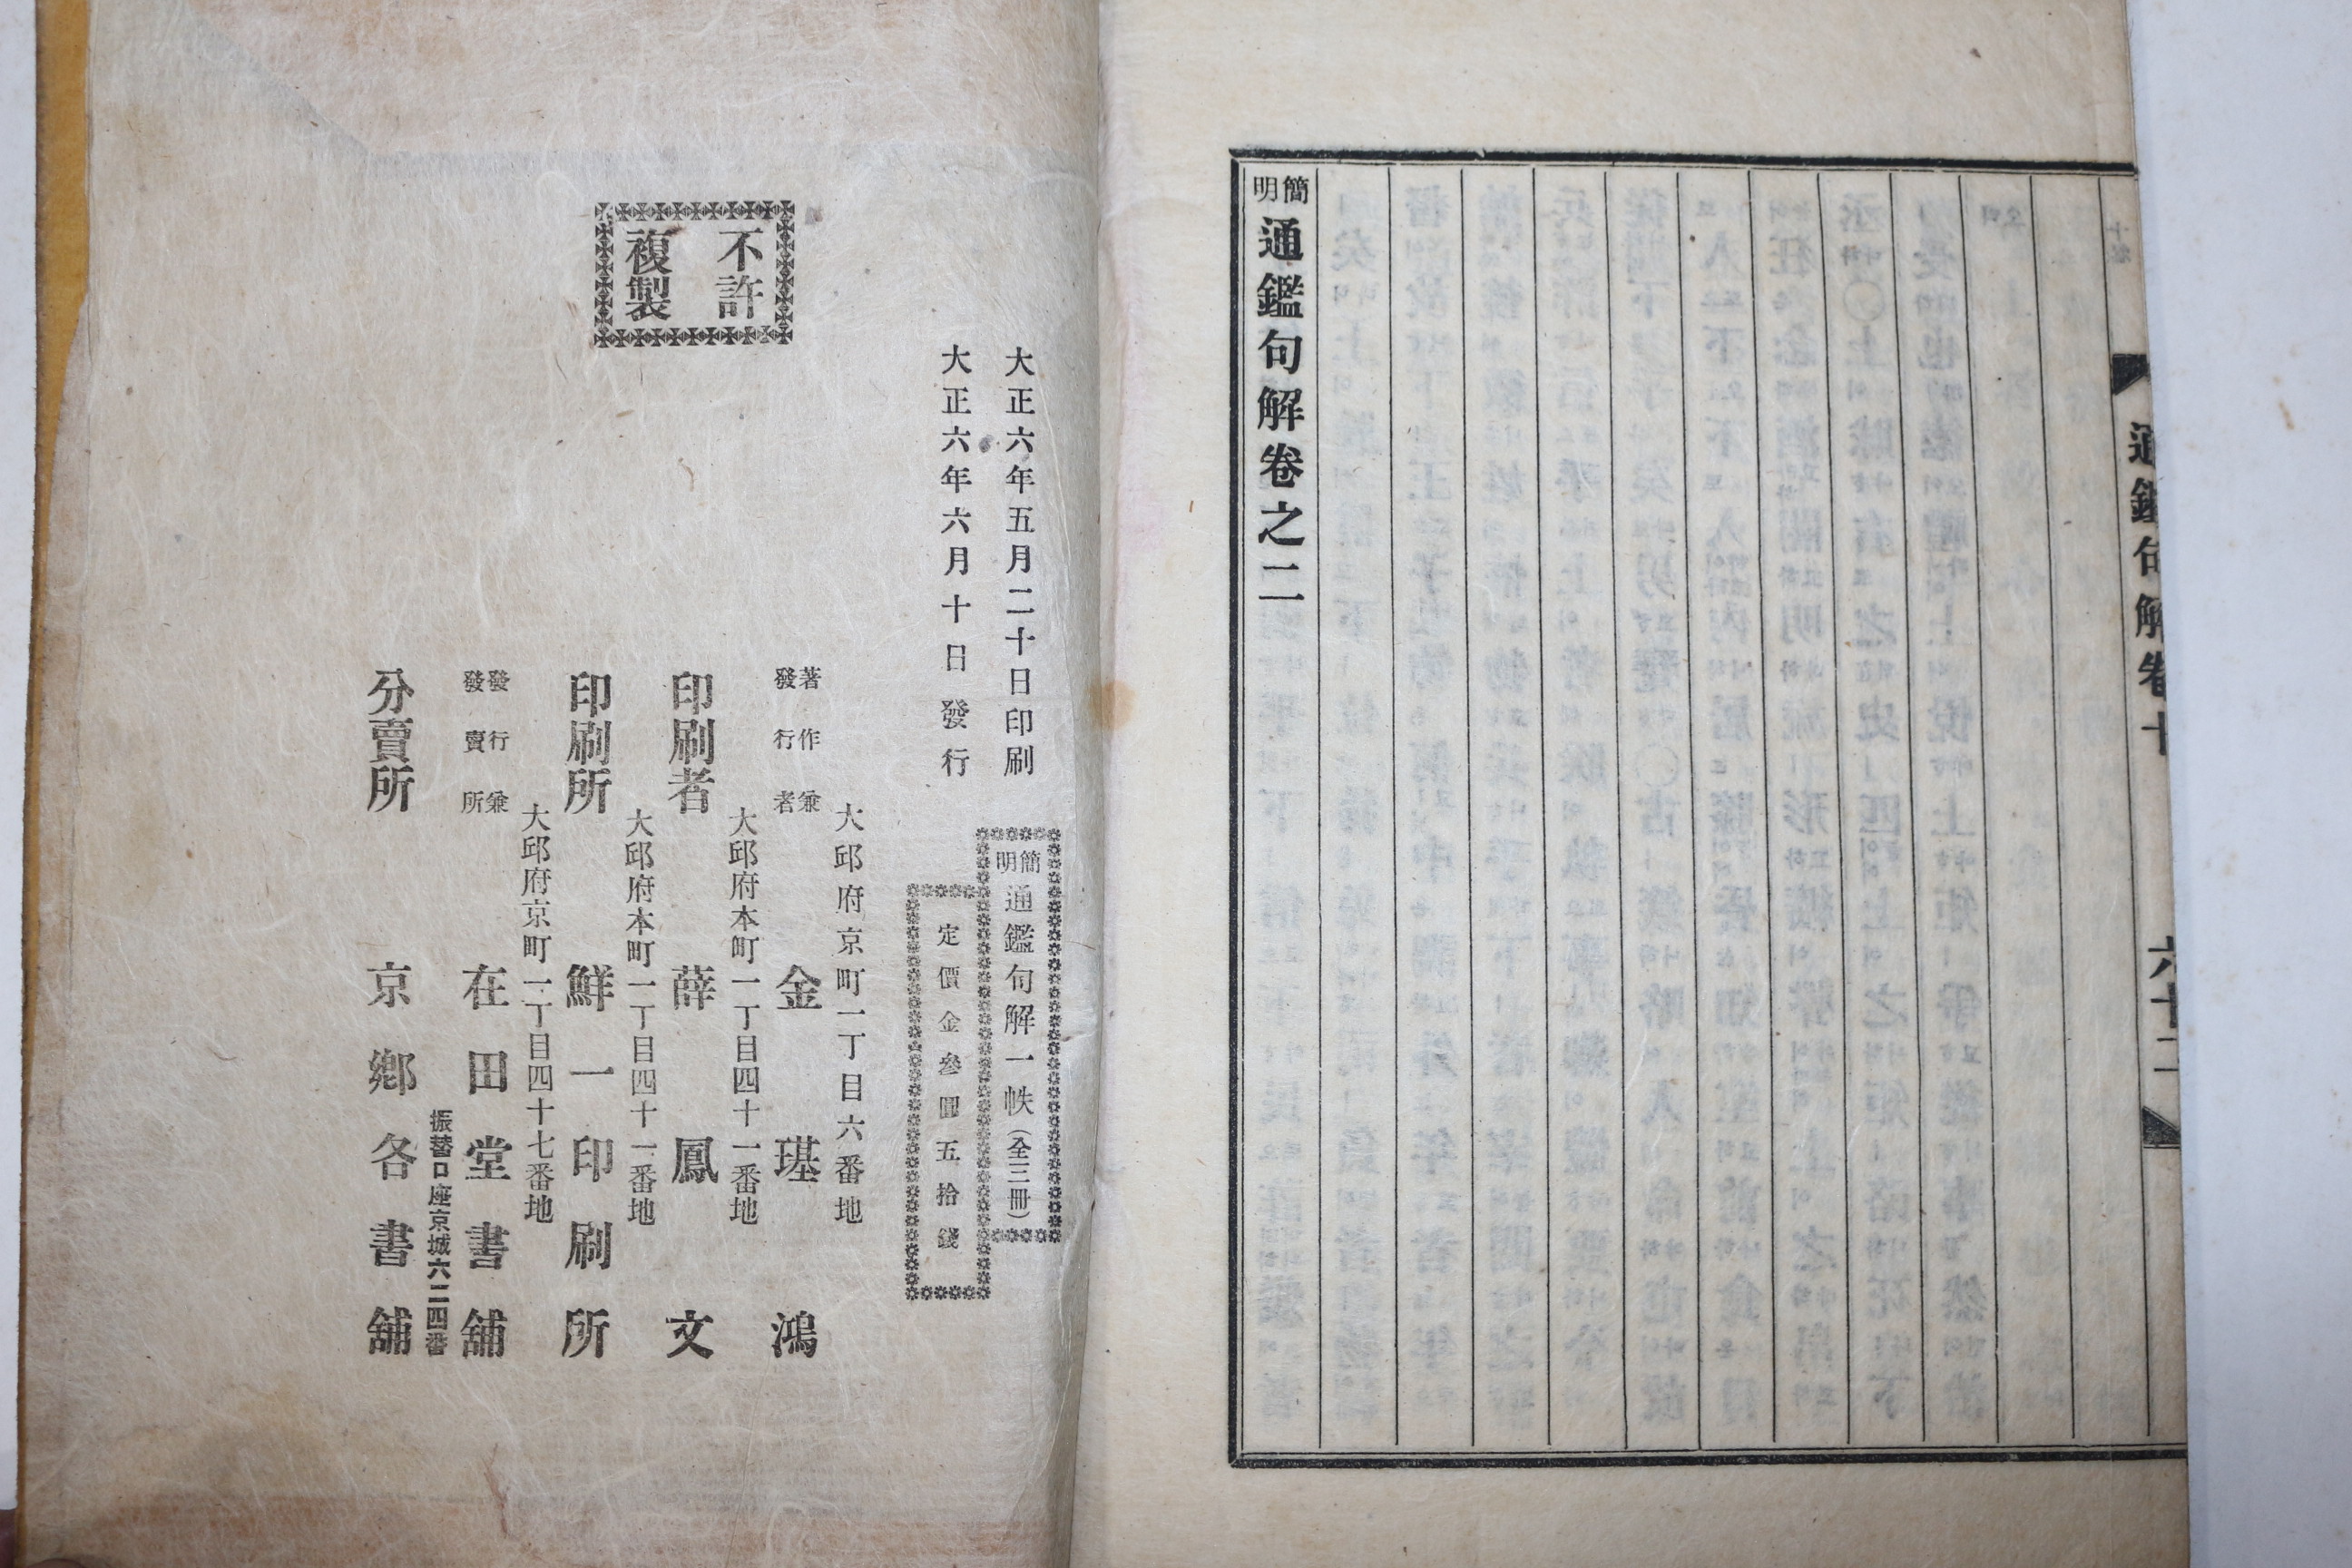 通鑑句解卷十
六十二
簡明通鑑句解卷之二
不許
複製
大正六年五月二十日印刷
大正六年六月十日發行
簡明通鑑句解一帙(全三冊)
定價金參圓五拾錢
大邱府京町一丁目六番地
著作兼發行者 金琪鴻
大邱府本町一丁目四十一番地
印刷者 薛鳳文
大邱府本町一丁目四十一番地
印刷所 鮮一印刷所
大邱府京町一丁目四十七番地
發行兼發賣所 在田堂書舖
振替口座京城六二四番
分賣所 京鄉各書舖